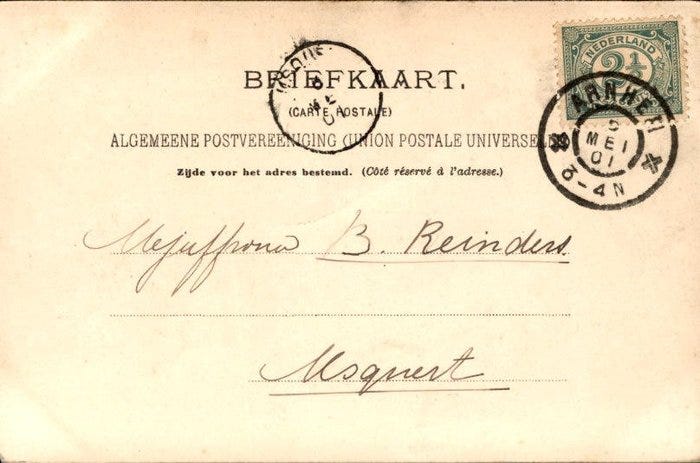 NEDERLAND
2½
BRIEFKAART.
(CARTE POSTALE)
ARNHEM
5
MEI
01
3-4N
ALGEMEENE POSTVEREENIGING (UNION POSTALE UNIVERSELLE)
Zijde voor het adres bestemd. (Côté réservé à l'adresse.)
Mejuffrouw B. Reinders.
Usquert